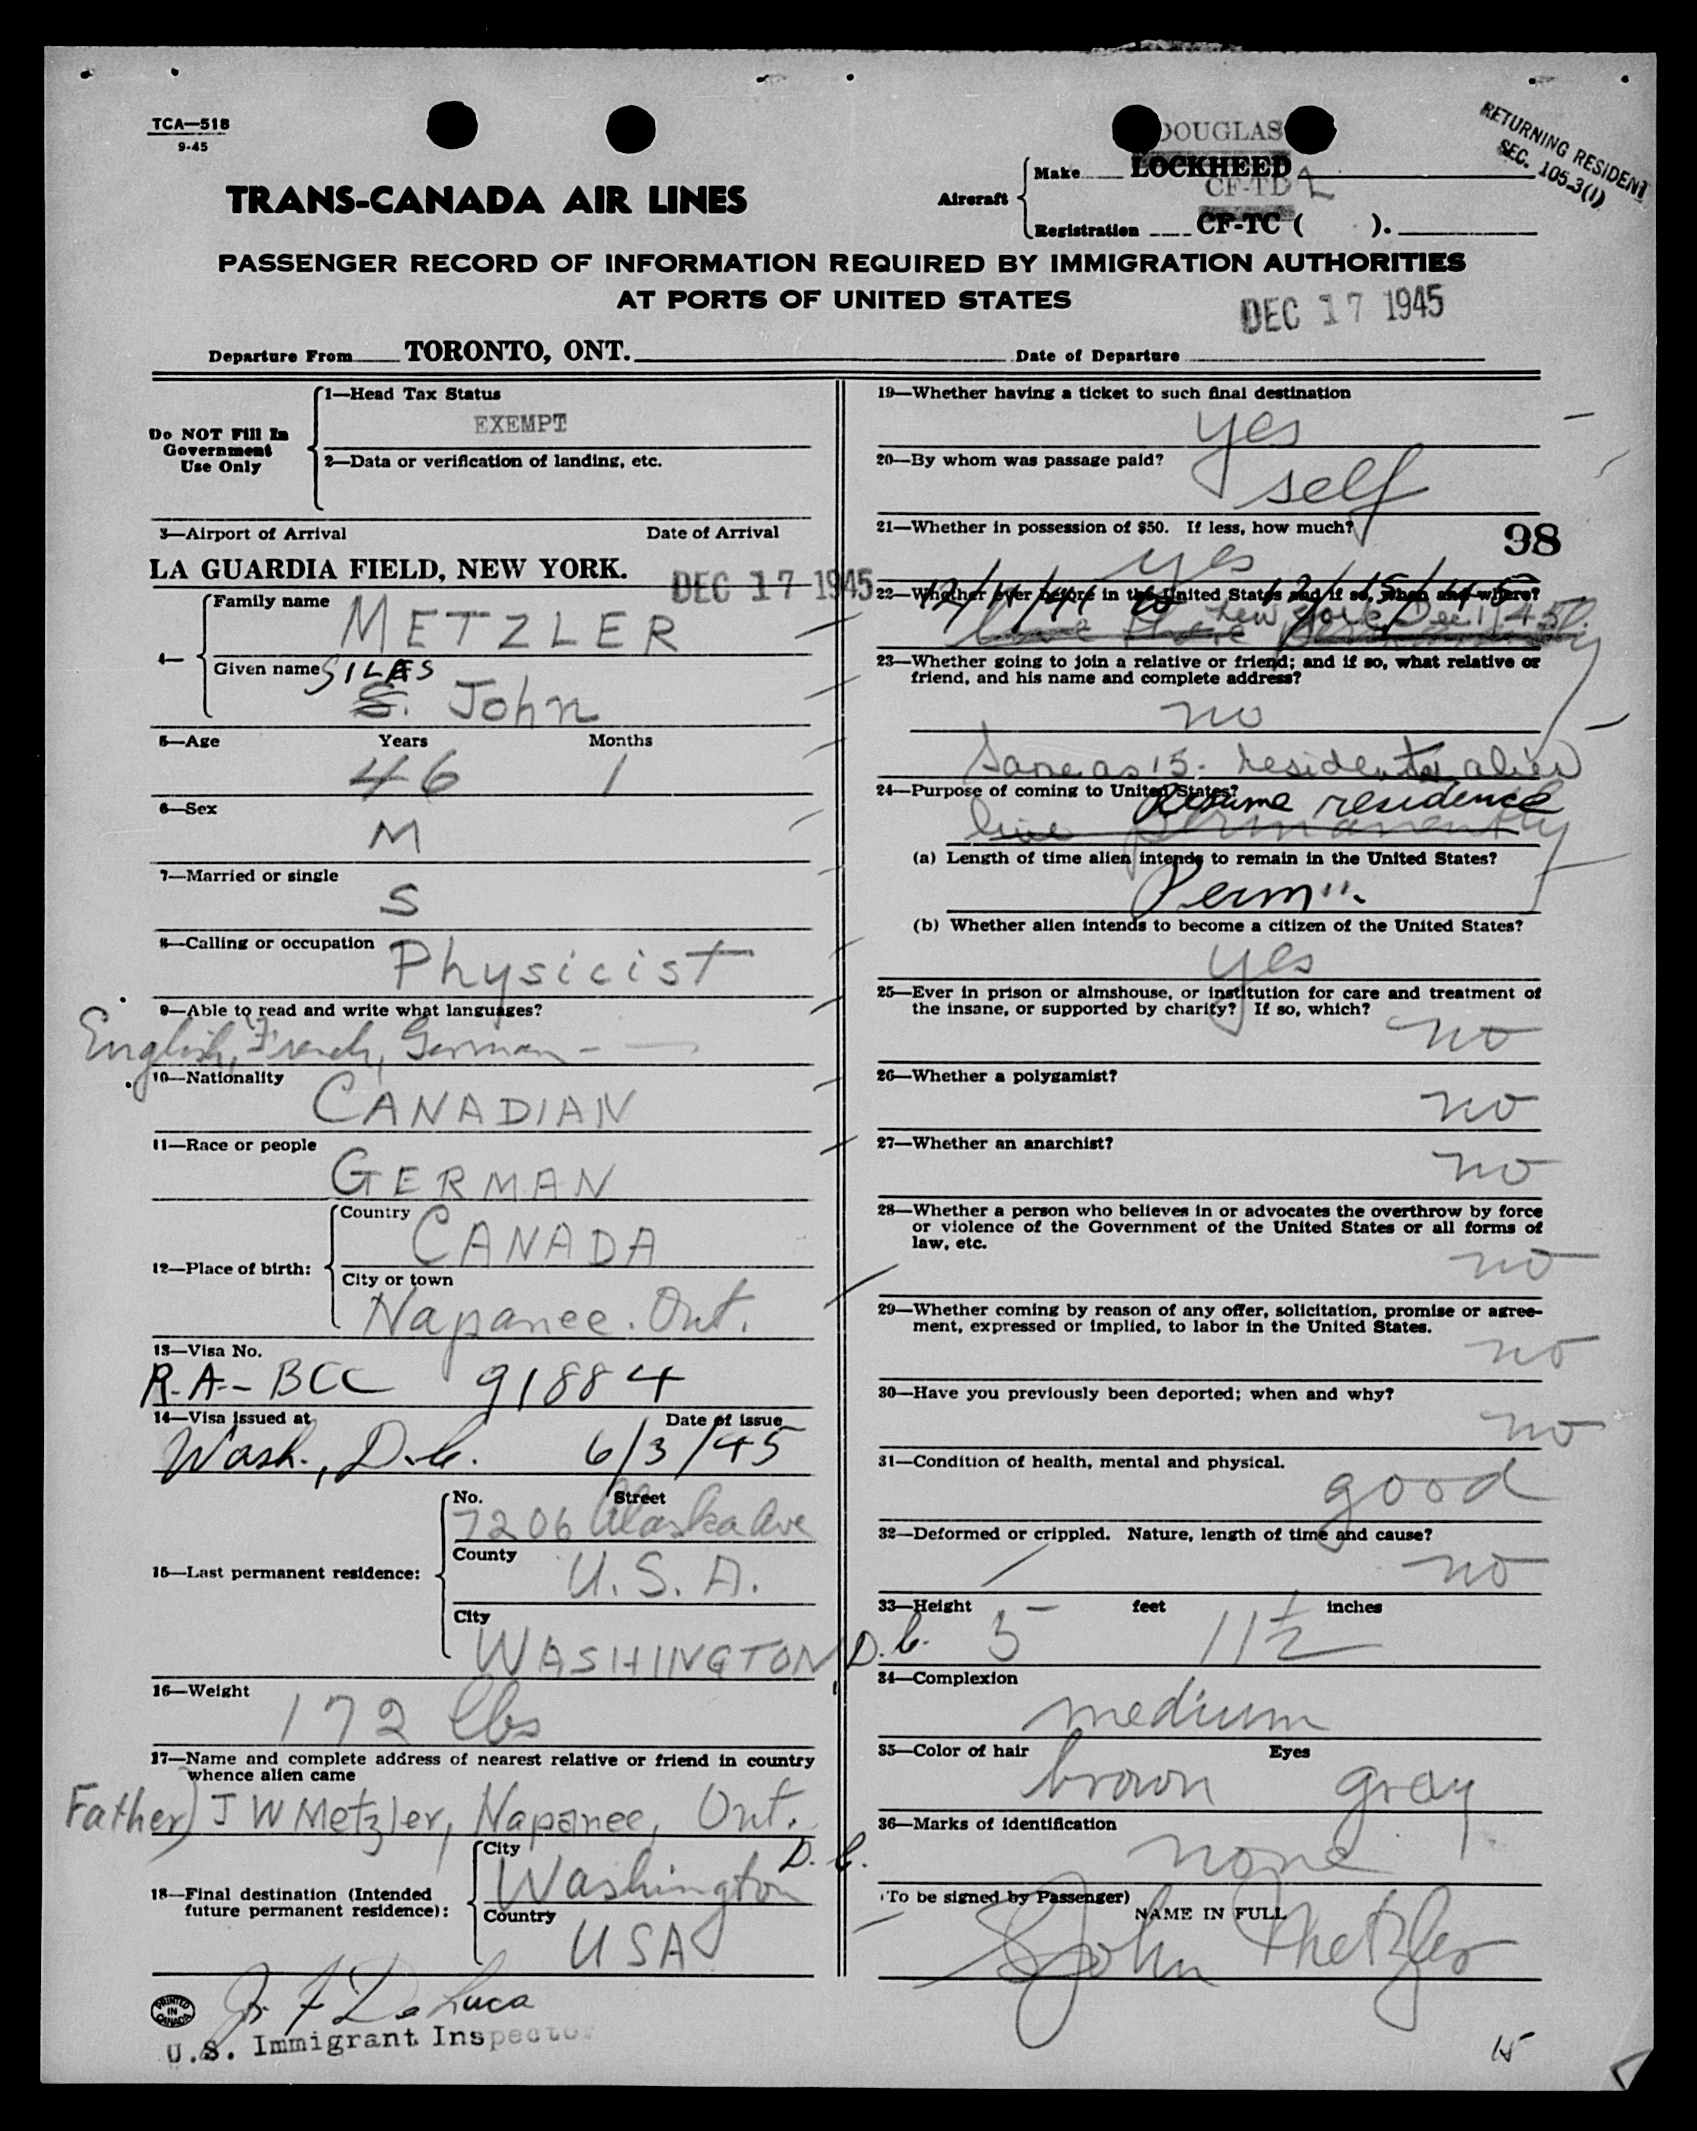 TCA—518
9-45
DOUGLAS
RETURNING RESIDENT
SEC. 105.3(1)
TRANS-CANADA AIR LINES
Aircraft
Make LOCKHEED
CF-TD L
Registration CF-TC ( ).
PASSENGER RECORD OF INFORMATION REQUIRED BY IMMIGRATION AUTHORITIES
AT PORTS OF UNITED STATES
DEC 17 1945
Departure From TORONTO, ONT. Date of Departure
Do NOT Fill In
Government
Use Only
1—Head Tax Status
EXEMPT
2—Data or verification of landing, etc.
3—Airport of Arrival Date of Arrival
LA GUARDIA FIELD, NEW YORK. DEC 17 1945
4— Family name METZLER
Given name SILAS
S. John
5—Age Years Months
46 1
6—Sex
M
7—Married or single
S
8—Calling or occupation Physicist
9—Able to read and write what languages?
English, French, German
10—Nationality
CANADIAN
11—Race or people
GERMAN
12—Place of birth:
Country CANADA
City or town
Napanee. Ont.
13—Visa No.
R.A-- BCC 91884
14—Visa issued at Date of issue
Wash., D.C. 6/3/45
15—Last permanent residence:
No. Street
7206 Alaska Ave
County
U.S.A.
City
WASHINGTON D.C.
16—Weight
172 lbs
17—Name and complete address of nearest relative or friend in country
whence alien came
Father) J W Metzler, Napanee, Ont.
18—Final destination (Intended
future permanent residence):
City
Washington D.C.
Country
USA
PRINTED
IN
CANADA
De Luca
U.S. Immigrant Inspector
19—Whether having a ticket to such final destination
yes
20—By whom was passage paid?
self
21—Whether in possession of $50. If less, how much?
98
yes
22—Whether ever before in the United States and if so, when and where?
12/ /41 to 12/15/45
New York Dec 1, 45
live there permanently
23—Whether going to join a relative or friend; and if so, what relative or
friend, and his name and complete address?
no
Same as 15. resident alien
24—Purpose of coming to United States?
Resume residence
live permanently
(a) Length of time alien intends to remain in the United States?
Perm"
(b) Whether alien intends to become a citizen of the United States?
yes
25—Ever in prison or almshouse, or institution for care and treatment of
the insane, or supported by charity? If so, which?
no
26—Whether a polygamist?
no
27—Whether an anarchist?
no
28—Whether a person who believes in or advocates the overthrow by force
or violence of the Government of the United States or all forms of
law, etc.
no
29—Whether coming by reason of any offer, solicitation, promise or agree-
ment, expressed or implied, to labor in the United States.
no
30—Have you previously been deported; when and why?
no
31—Condition of health, mental and physical.
good
32—Deformed or crippled. Nature, length of time and cause?
no
33—Height 5 feet 11½ inches
34—Complexion
medium
35—Color of hair Eyes
brown gray
36—Marks of identification
none
(To be signed by Passenger)
NAME IN FULL
S John Metzler
15